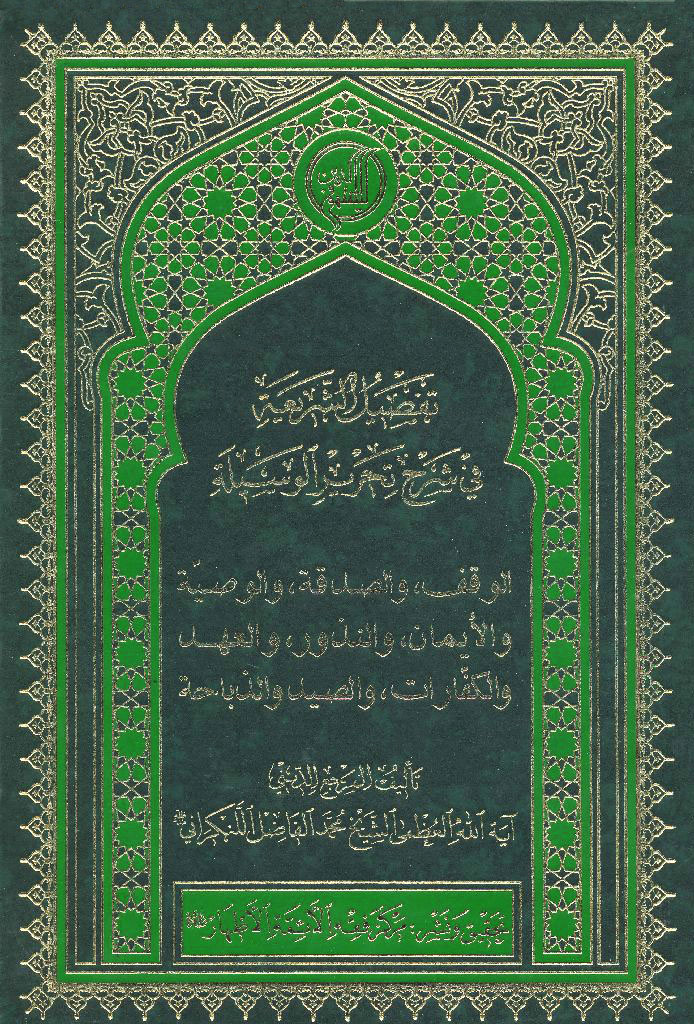 تفصيل الشريعة
في شرح تحرير الوسيلة
الوقف، والصدقة، والوصيّة
والأيمان، والنذور، والعهد
والكفّارات، والصيد والذباحة
تأليف المرجع الديني
آية الله العظمى الشيخ محمد الفاضل اللنكراني
تحقيق ونشر: مركز فقه الأئمة الأطهار